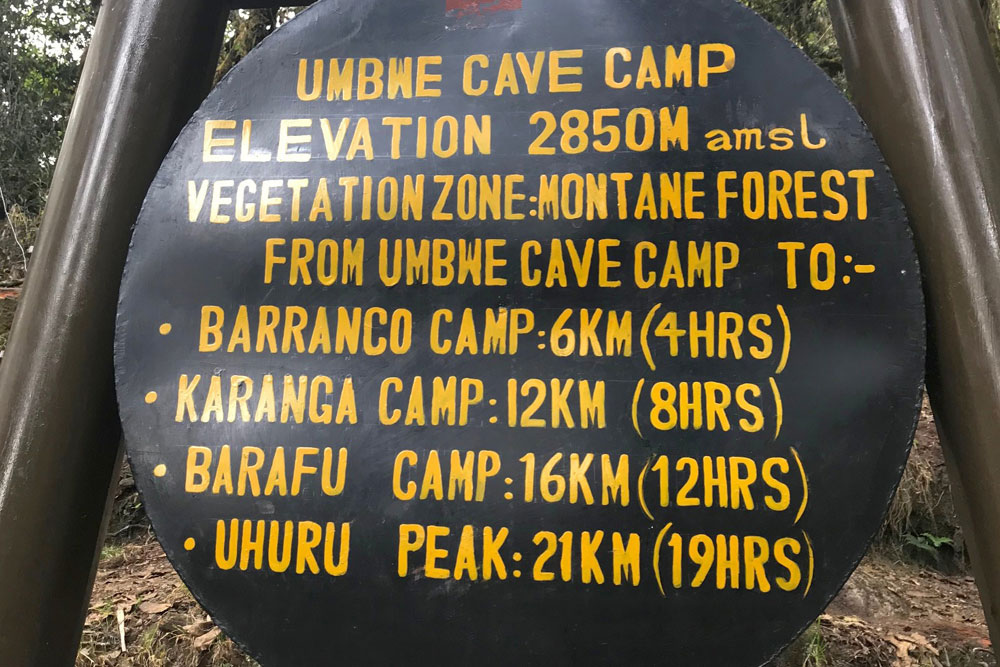 UMBWE CAVE CAMP
ELEVATION 2850M amsl
VEGETATION ZONE:MONTANE FOREST
FROM UMBWE CAVE CAMP TO:-
• BARRANCO CAMP:6KM(4HRS)
• KARANGA CAMP:12KM (8HRS)
• BARAFU CAMP:16KM(12HRS)
• UHURU PEAK:21KM(19HRS)